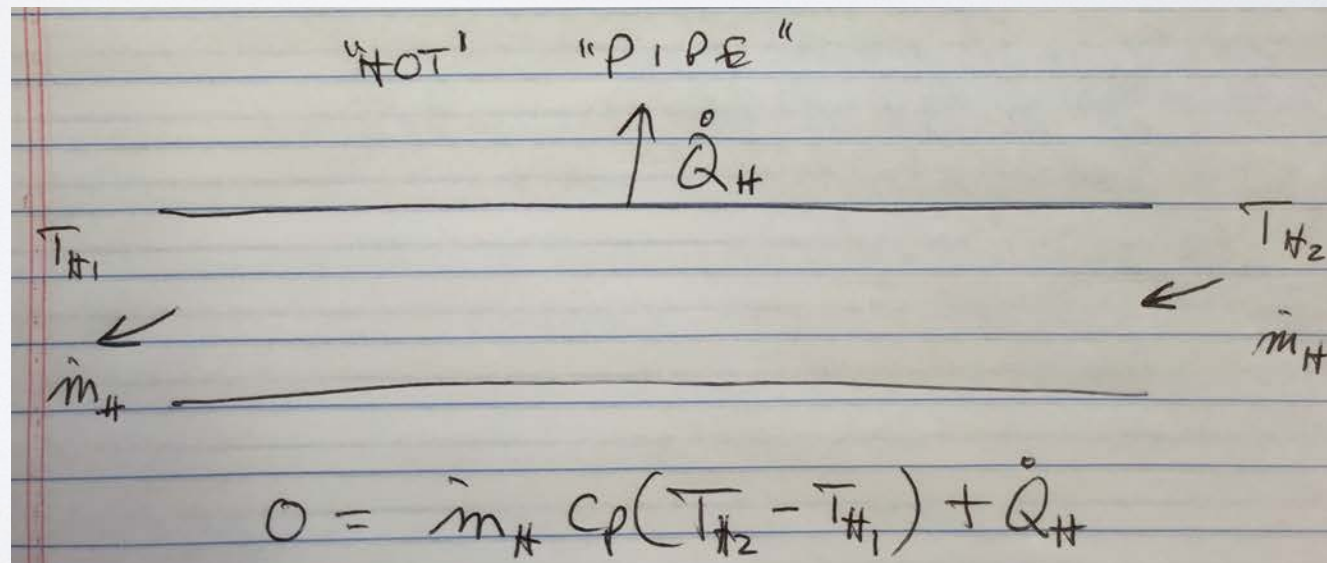 "HOT" "PIPE"
Q̊_H
T_H1
T_H2
ṁ_H
ṁ_H
0 = ṁ_H Cp(T_H2 - T_H1) + Q̊_H